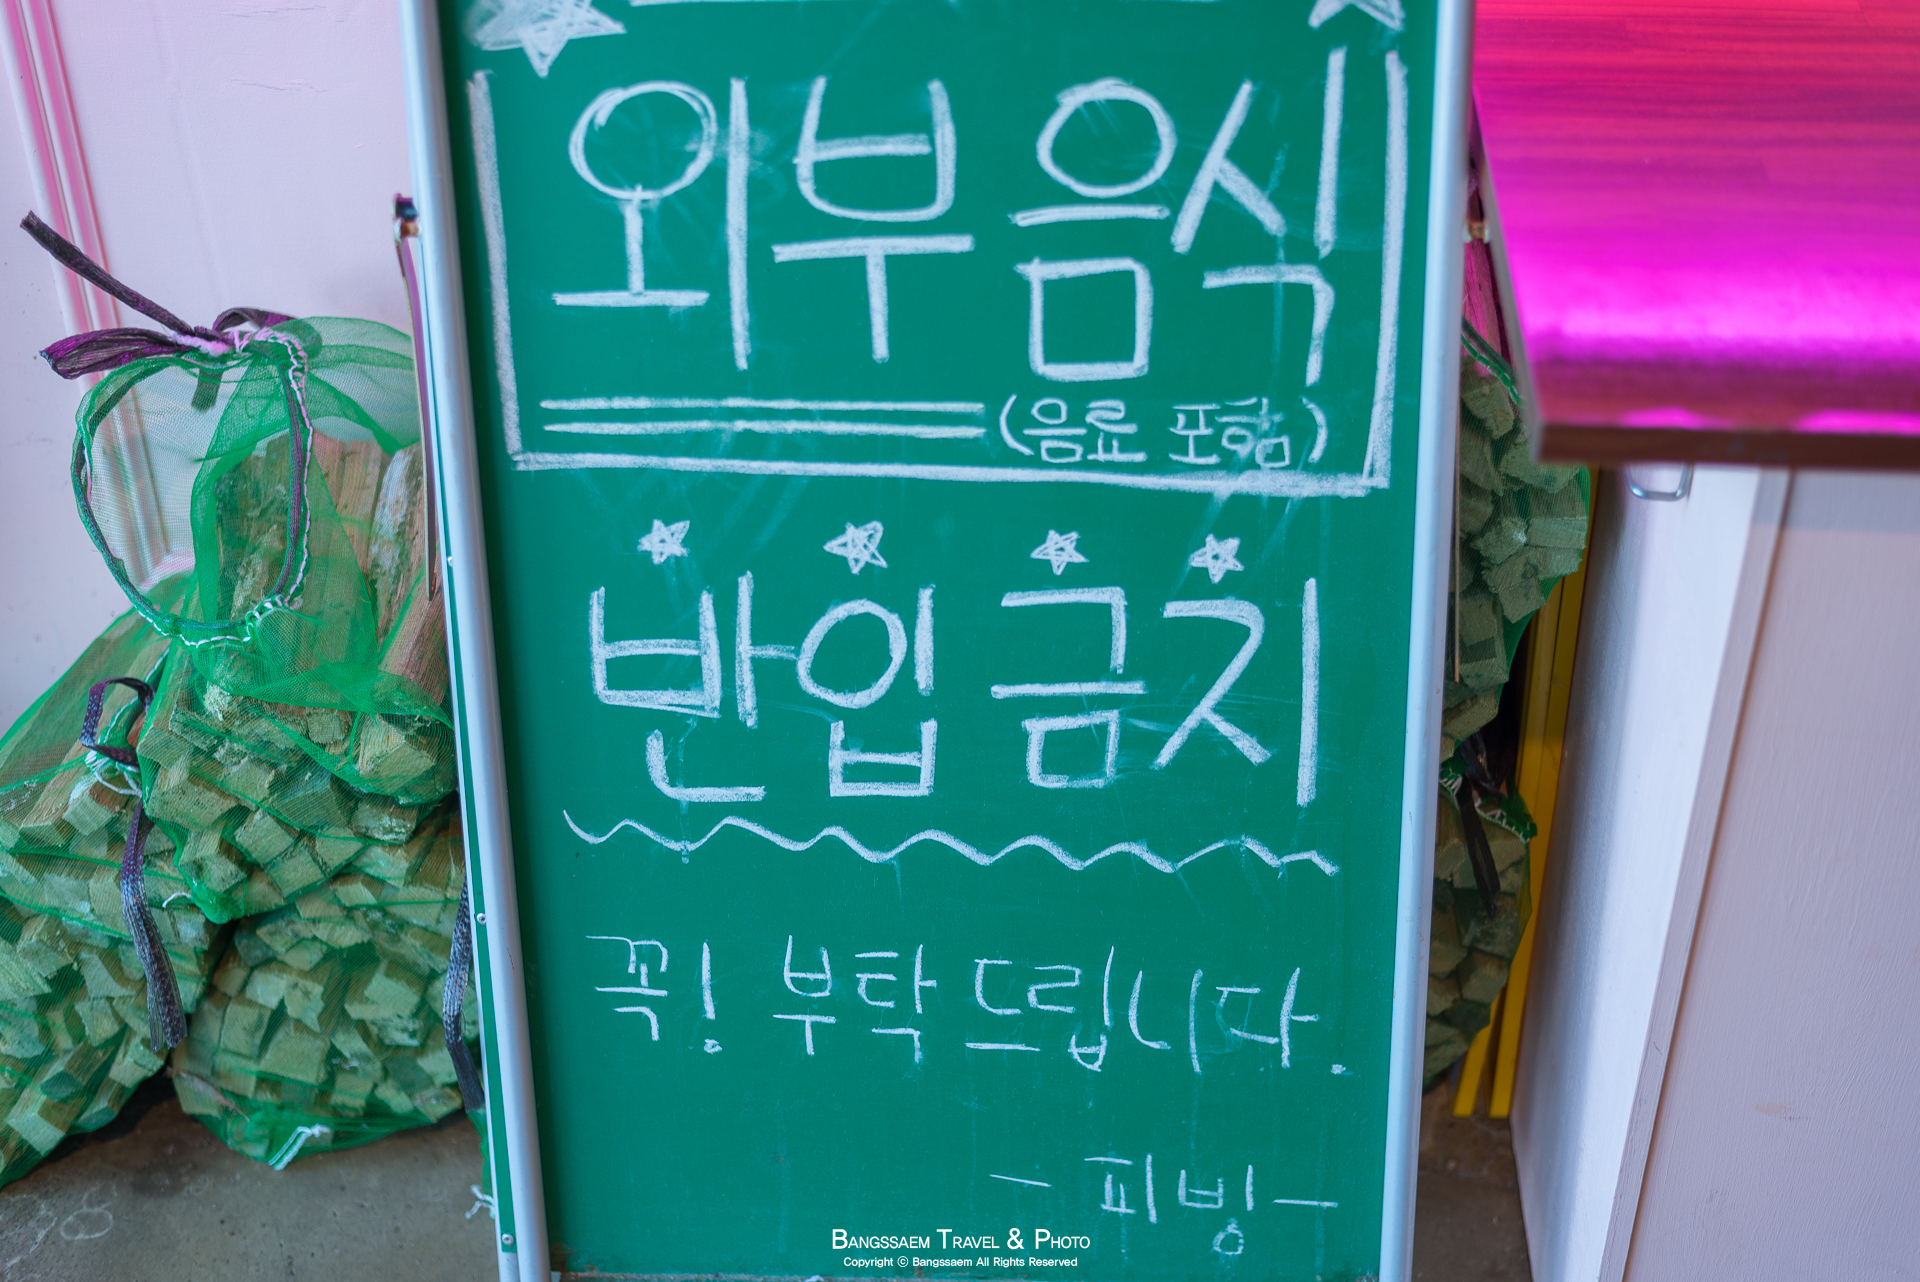 외부 음식
(음료 포함)
반입 금지
꼭! 부탁드립니다.
- 피빙 -
Bangssaem Travel & Photo
Copyright ⓒ Bangssaem All Rights Reserved